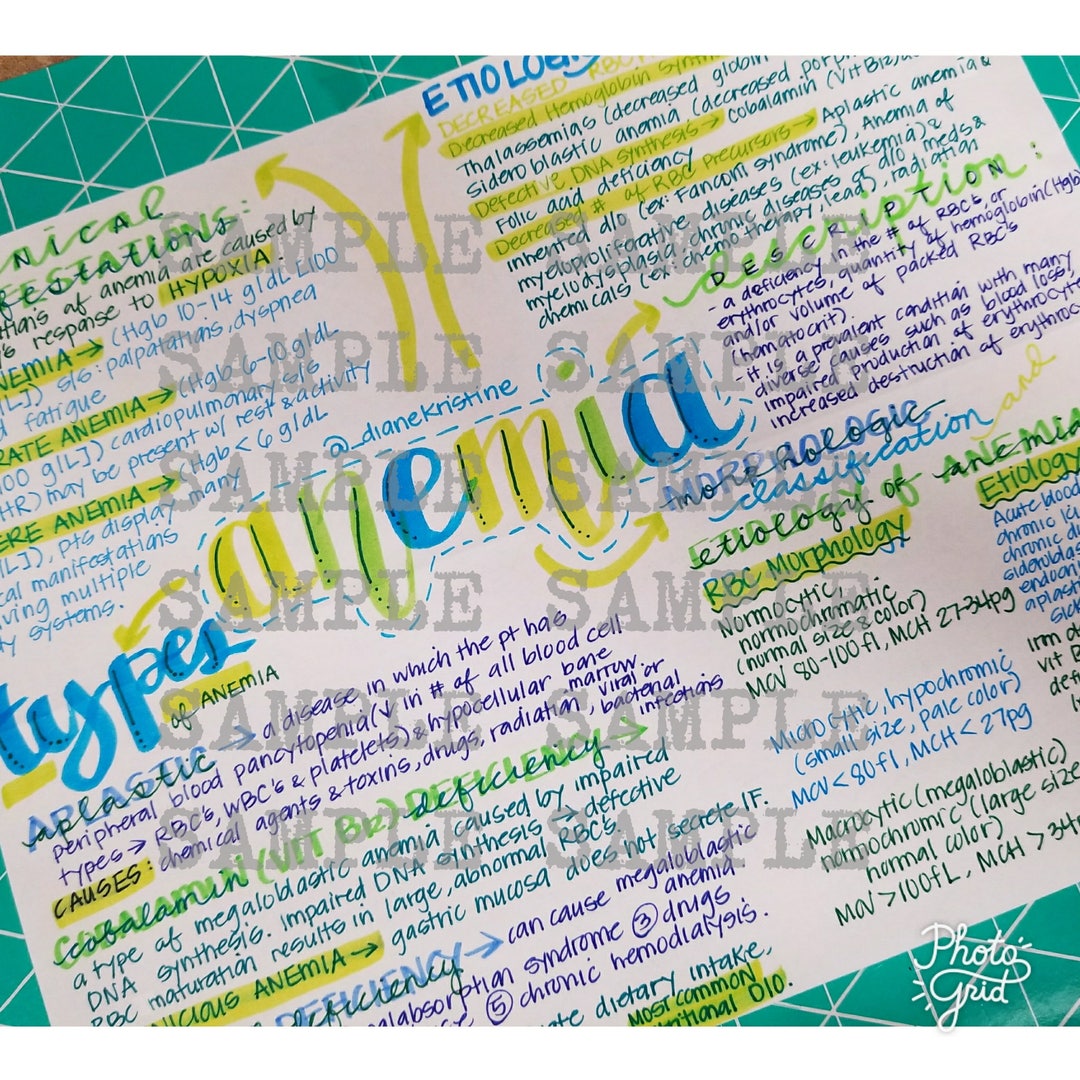 ETIOLOGY
DECREASED RBC
Decreased Hemoglobin Synth
Thalassemias (decreased globin
sideroblastic anemia (decreased porp
Defective DNA synthesis → cobalamin (Vit B12)
Folic acid deficiency
Decreased # of RBC Precursors → Aplastic anemia &
inherited d/o (ex: Fanconi syndrome), Anemia of
myeloproliferative diseases (ex: leukemia) &
myelodysplasia, chronic diseases or d/o, meds &
chemicals (ex: chemotherapy, lead), radiation
NICAL
ESTATIONS:
ations of anemia are caused by
's response to HYPOXIA.
NEMIA → (Hgb 10-14 g/dL [100
g/L]) s/s: palpatations, dyspnea
d fatigue
RATE ANEMIA → (Hgb 6-10 g/dL
100 g/L]) cardiopulmonary s/s
HR) may be present w/ rest & activity
ERE ANEMIA → (Hgb < 6 g/dL
L]), pts display many
cal manifestations
ving multiple
y systems.
DESCRIPTION
description:
- a deficiency in the # of RBC's, or
erythrocytes, quantity of hemoglobin (Hgb
and/or volume of packed RBC's
(hematocrit).
it is a prevalent condition with many
diverse causes such as blood loss,
impaired production of erythrocyte
increased destruction of erythrocy
@_dianekristine
anemia
MORPHOLOGIC
morphologic
classification and
etiology OF ANEMIA
RBC Morphology
Normocytic,
normochromatic
(normal size & color)
MCV 80-100fl, MCH 27-34pg
Microcytic, hypochromic
(small size, pale color)
MCV < 80fl, MCH < 27pg
Macrocytic (megaloblastic)
normochromic (large size
normal color)
MCV > 100fL, MCH > 34p
Etiology
Acute blood
chronic
chronic di
siderobla
endocrin
aplast
sick
Iron d
vit B
defi
types
of ANEMIA
APLASTIC
aplastic → a disease in which the pt has
peripheral blood pancytopenia (↓ in # of all blood cell
types → RBC's, WBC's & platelets) & hypocellular bone marrow.
CAUSES: chemical agents & toxins, drugs, radiation, viral or bacterial infections
cobalamin (VIT B12) DEFICIENCY →
deficiency
a type of megaloblastic anemia caused by impaired
DNA synthesis. impaired DNA synthesis → defective
RBC maturation results in large, abnormal RBC's.
NICIOUS ANEMIA → gastric mucosa does not secrete IF.
DEFICIENCY → can cause megaloblastic anemia
deficiency
malabsorption syndrome ③ drugs
⑤ chronic hemodialysis.
te dietary intake.
Most common
nutritional D/O.
SAMPLE SAMPLE
SAMPLE SAMPLE
SAMPLE SAMPLE
SAMPLE SAMPLE
SAMPLE SAMPLE
SAMPLE SAMPLE
Photo
Grid